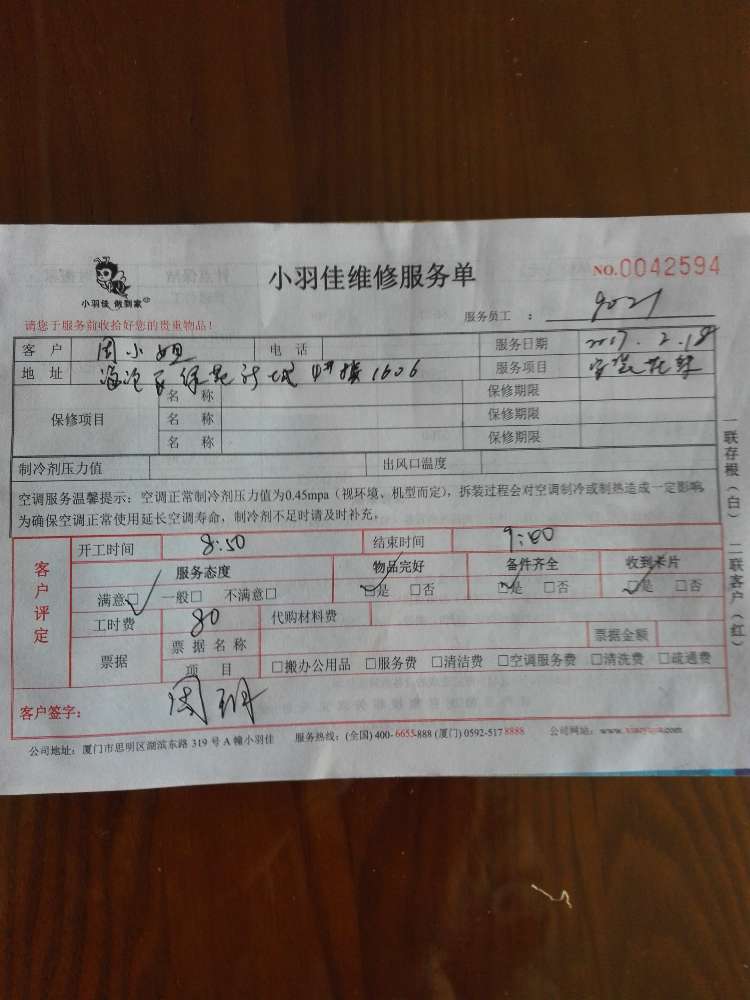 小羽佳 做到家
小羽佳维修服务单
NO.0042594
服务员工 : 9021
请您于服务前收拾好您的贵重物品!
客 户 周小姐 电 话 服务日期 2017.2.18
地 址 海沧区绿苑新城4#楼1606 服务项目 安装花洒
保修项目 名 称 保修期限
名 称 保修期限
名 称 保修期限
制冷剂压力值 出风口温度
空调服务温馨提示:空调正常制冷剂压力值为0.45mpa(视环境、机型而定),拆装过程会对空调制冷或制热造成一定影响,
为确保空调正常使用延长空调寿命,制冷剂不足时请及时补充。
客户评定
开工时间 8:50 结束时间 9:00
服务态度 物品完好 备件齐全 收到卡片
满意□ 一般□ 不满意□ □是 □否 □是 □否 □是 □否
工时费 80 代购材料费
票据 票 据 名 称 票据金额
项 目 □搬办公用品 □服务费 □清洁费 □空调服务费 □清洗费 □疏通费
客户签字: 周
公司地址:厦门市思明区湖滨东路 319 号 A 幢小羽佳 服务热线:(全国)400-6655-888 (厦门) 0592-517 8888 公司网站:
一联存根(白) 二联客户(红)